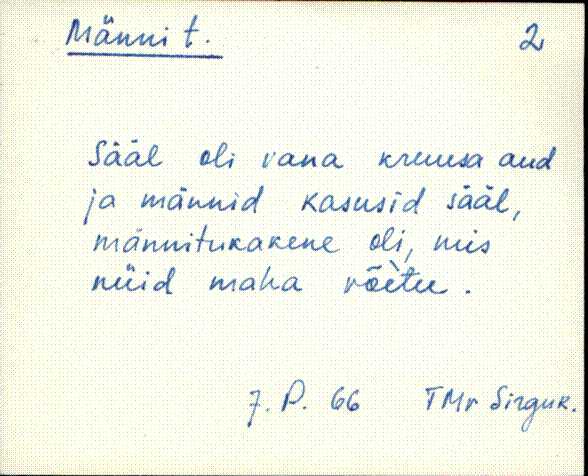 Männi t. 2
Sääl oli vana kruusa aud
ja männid kasusid sääl,
männitukakene oli, mis
nüid maha võètu.
J. P. 66 TMr Sirguk.